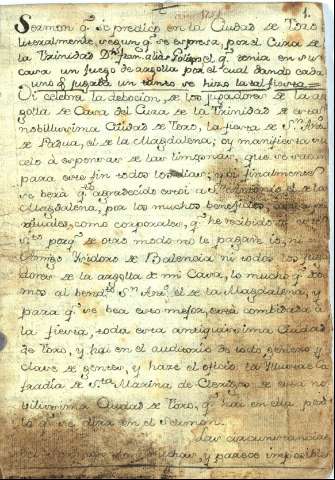 1.
Sermon q.e se predicó en la Ciudad de Toro
literalmente, segun q.e se expresa, por el Cura de
la Trinidad Dn. fran. alias q.e tenia en su
casa un juego de argolla por el cual dando cada
uno q.e jugaba un tanto se hizo la tal fiesta =
Oi celebra la devocion, de los jugadores de la ar
golla de Casa del Cura de la Trinidad de esta
nobilissima Ciudad de Toro, la fiesta de Sn.
de Padua, el de la Magdalena; oy manifiesta su
celo á espensas de las limosnas, que se
para este fin todos los dias; y finalmente
se berá q.e agradecido está a el de la
Magdalena, por los muchos beneficios, asi
como corporales, q.e he recibido de
porq.e de otro modo no le pagará yo, ni
Domingo Ysidoro de Palencia ni todos los juga
dores de la argolla de mi Casa, lo mucho q.e
mos al bend.to Sn. Ant.o el de la Magdalena, y
para q.e se bea esto mejor, está combidada á
la fiesta, toda esta antiquissima Ciudad
de Toro, y hai en el auditorio de todo genero y
clase de gentes, y haze el oficio la Illustre Co
fradia de Sta. Maxina de Clerigos de esta no
vilissima Ciudad de Toro, q.e hai en ella
lo q.e se dira en el Sermon.
Las circunstancias
del son muchas, y parece imposible